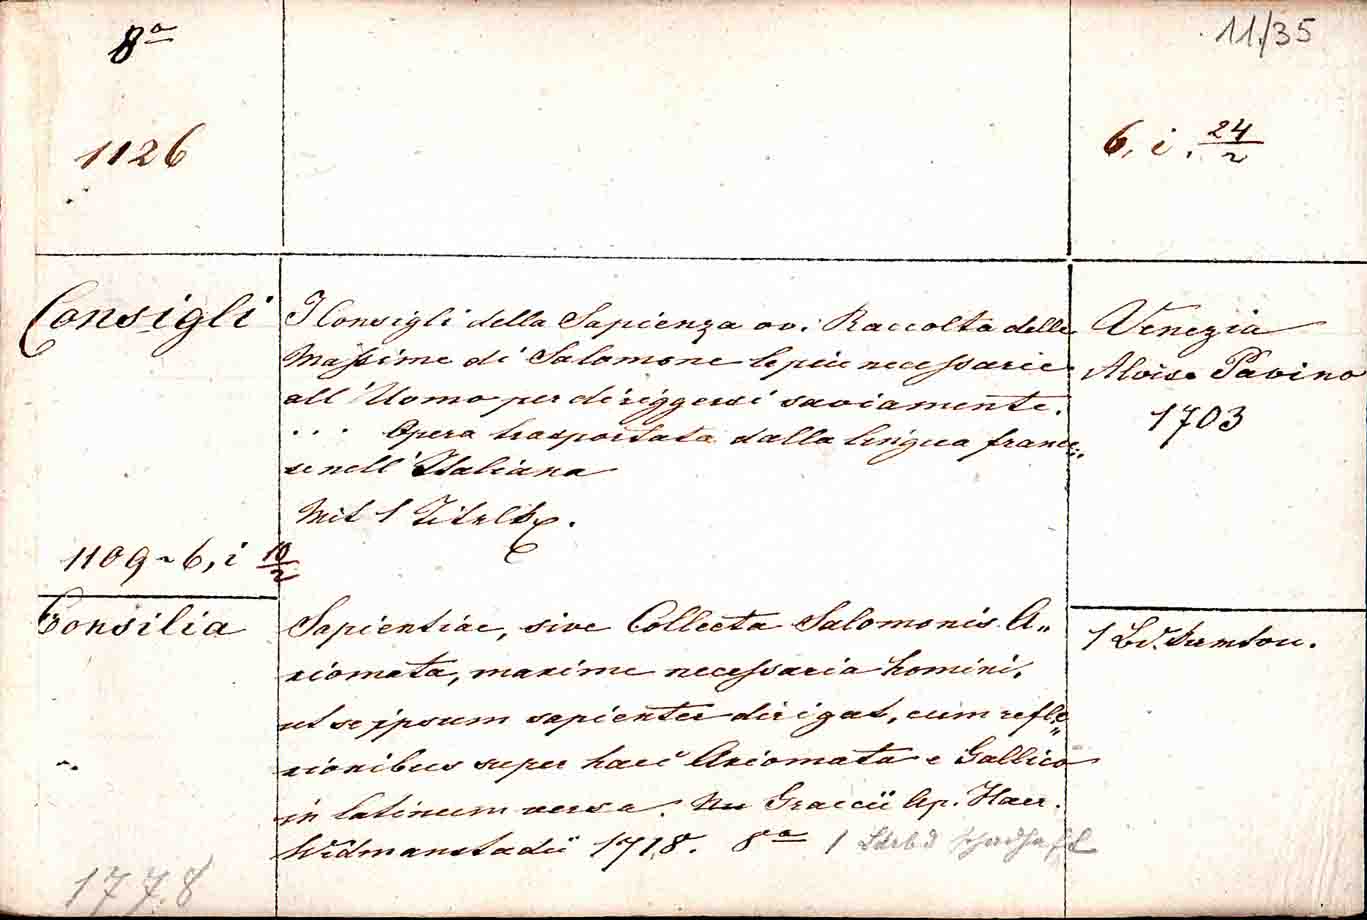 8º
11./35
1126
6, i. 24/2
Consigli
I Consigli della Sapienza ov. Raccolta delle
Massime di Salomone le piu necessarie
all' Uomo per diriggersi saviamente.
... Opera trasportata dalla lingua france„
se nell' Italiana
Mit 1 Titelk.
Venezia
Alvise Pavino
1703
1109 ~ 6, i 10/2
Consilia
Sapientiae, sive Collecta Salomonis A„
xiomata, maxime necessaria homini,
ut se ipsum sapienter dirigat, cum refle„
xionibus super haec Axiomata e Gallico
in latinum versa. Graecii Ap. Haer.
Widmanstadii 1718. 8º 1 Ldrbd schadhaft
1 Bd.
1778